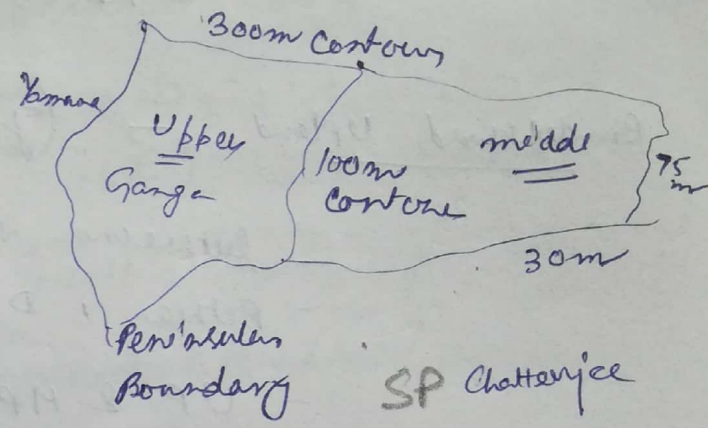 300m Contour
Yamuna
Upper
Ganga
100m
Contour
middle
75
m
30m
Peninsular
Boundary
SP Chatterjee